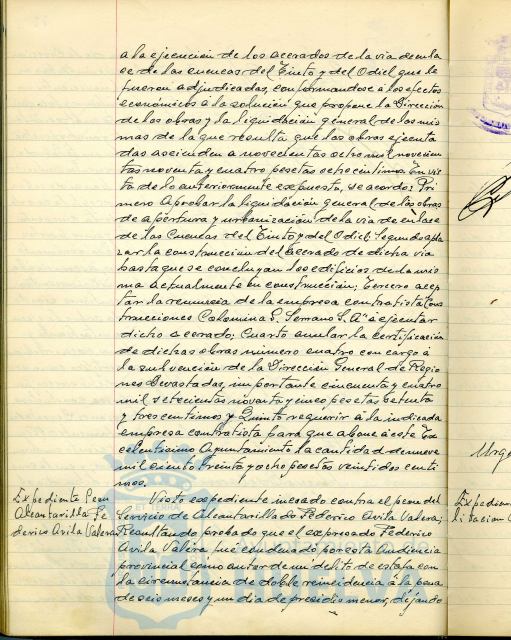 a la ejecución de los acerados de la vía de enla
ce de las cuencas del Tinto y del Odiel que le
fueron adjudicadas, conformandose a los efectos
económicos á la solución que propone la Dirección
de las obras y la liquidación general de las mis
mas de la que resulta que las obras ejecuta
das ascienden a novecientas ocho mil novecien
tas noventa y cuatro pesetas ocho centimos. En vis
ta de lo anteriormente expuesto, se acordo: Pri
mero Aprobar la liquidación general de las obras
de apertura y urbanización de la vía de enlace
de las Cuencas del Tinto y del Odiel: Segundo apla
zar la construcción del acerado de dicha vía
hasta que se concluyan los edificios de la mis
ma actualmente en construcción; Tercero acep
tar la renuncia de la empresa contratista Cons
trucciones Colomina G. Serrano S. Aª á ejecutar
dicho acerado; Cuarto anular la certificación
de dichas obras número cuatro con cargo á
la subvención de la Dirección General de Regio
nes Devastadas, importante cincuenta y cuatro
mil setecientas noventa y cinco pesetas setenta
y tres centimos y Quinto requerir á la indicada
empresa contratista para que abone á este Ex
celentísimo Ayuntamiento la cantidad de nueve
mil ciento treinta y ocho pesetas veintidos centi
mos.
Expediente Peon
Alcantarilla Fe
derico Avila Valera
Visto expediente incoado contra el peon del
Servicio de Alcantarillado Federico Avila Valera;
Resultando probado que el expresado Federico
Avila Valera fué condenado por esta Audiencia
provincial como autor de un delito de estafa con
la circunstancia de doble reincidencia á la pena
de seis meses y un día de presidio menor, dejando
Urge
Expedien